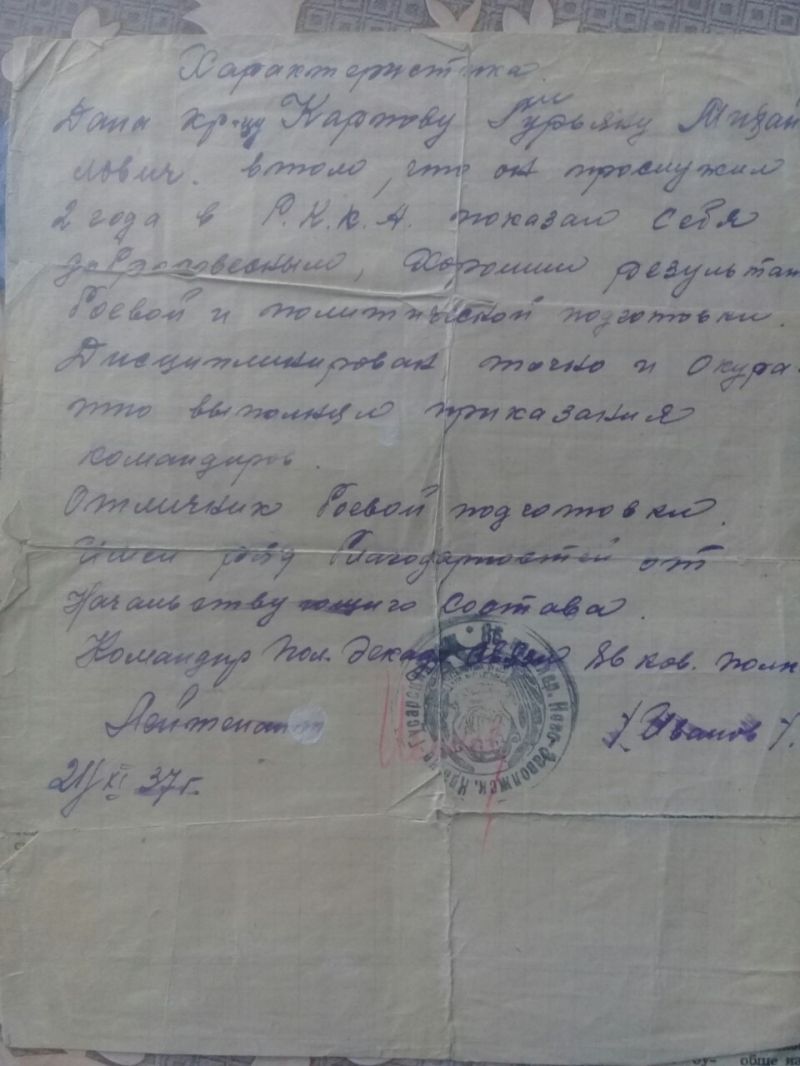 Характеристика.
Дана кр-цу Карпову Гурьяну Михай
лович. в том, что он прослужил
2 года в Р.К.К.А. показал себя
хорошими результат
боевой и политической подготовки.
Дисциплинирован точно и Окура-
тно выполнял приказания
командиров.
Отличник боевой подготовки.
Имел ряд благодарностей от
Начальствующиго Состава.
Командир пол.
Лейтенант / Иванов /.
21/XI 37г.